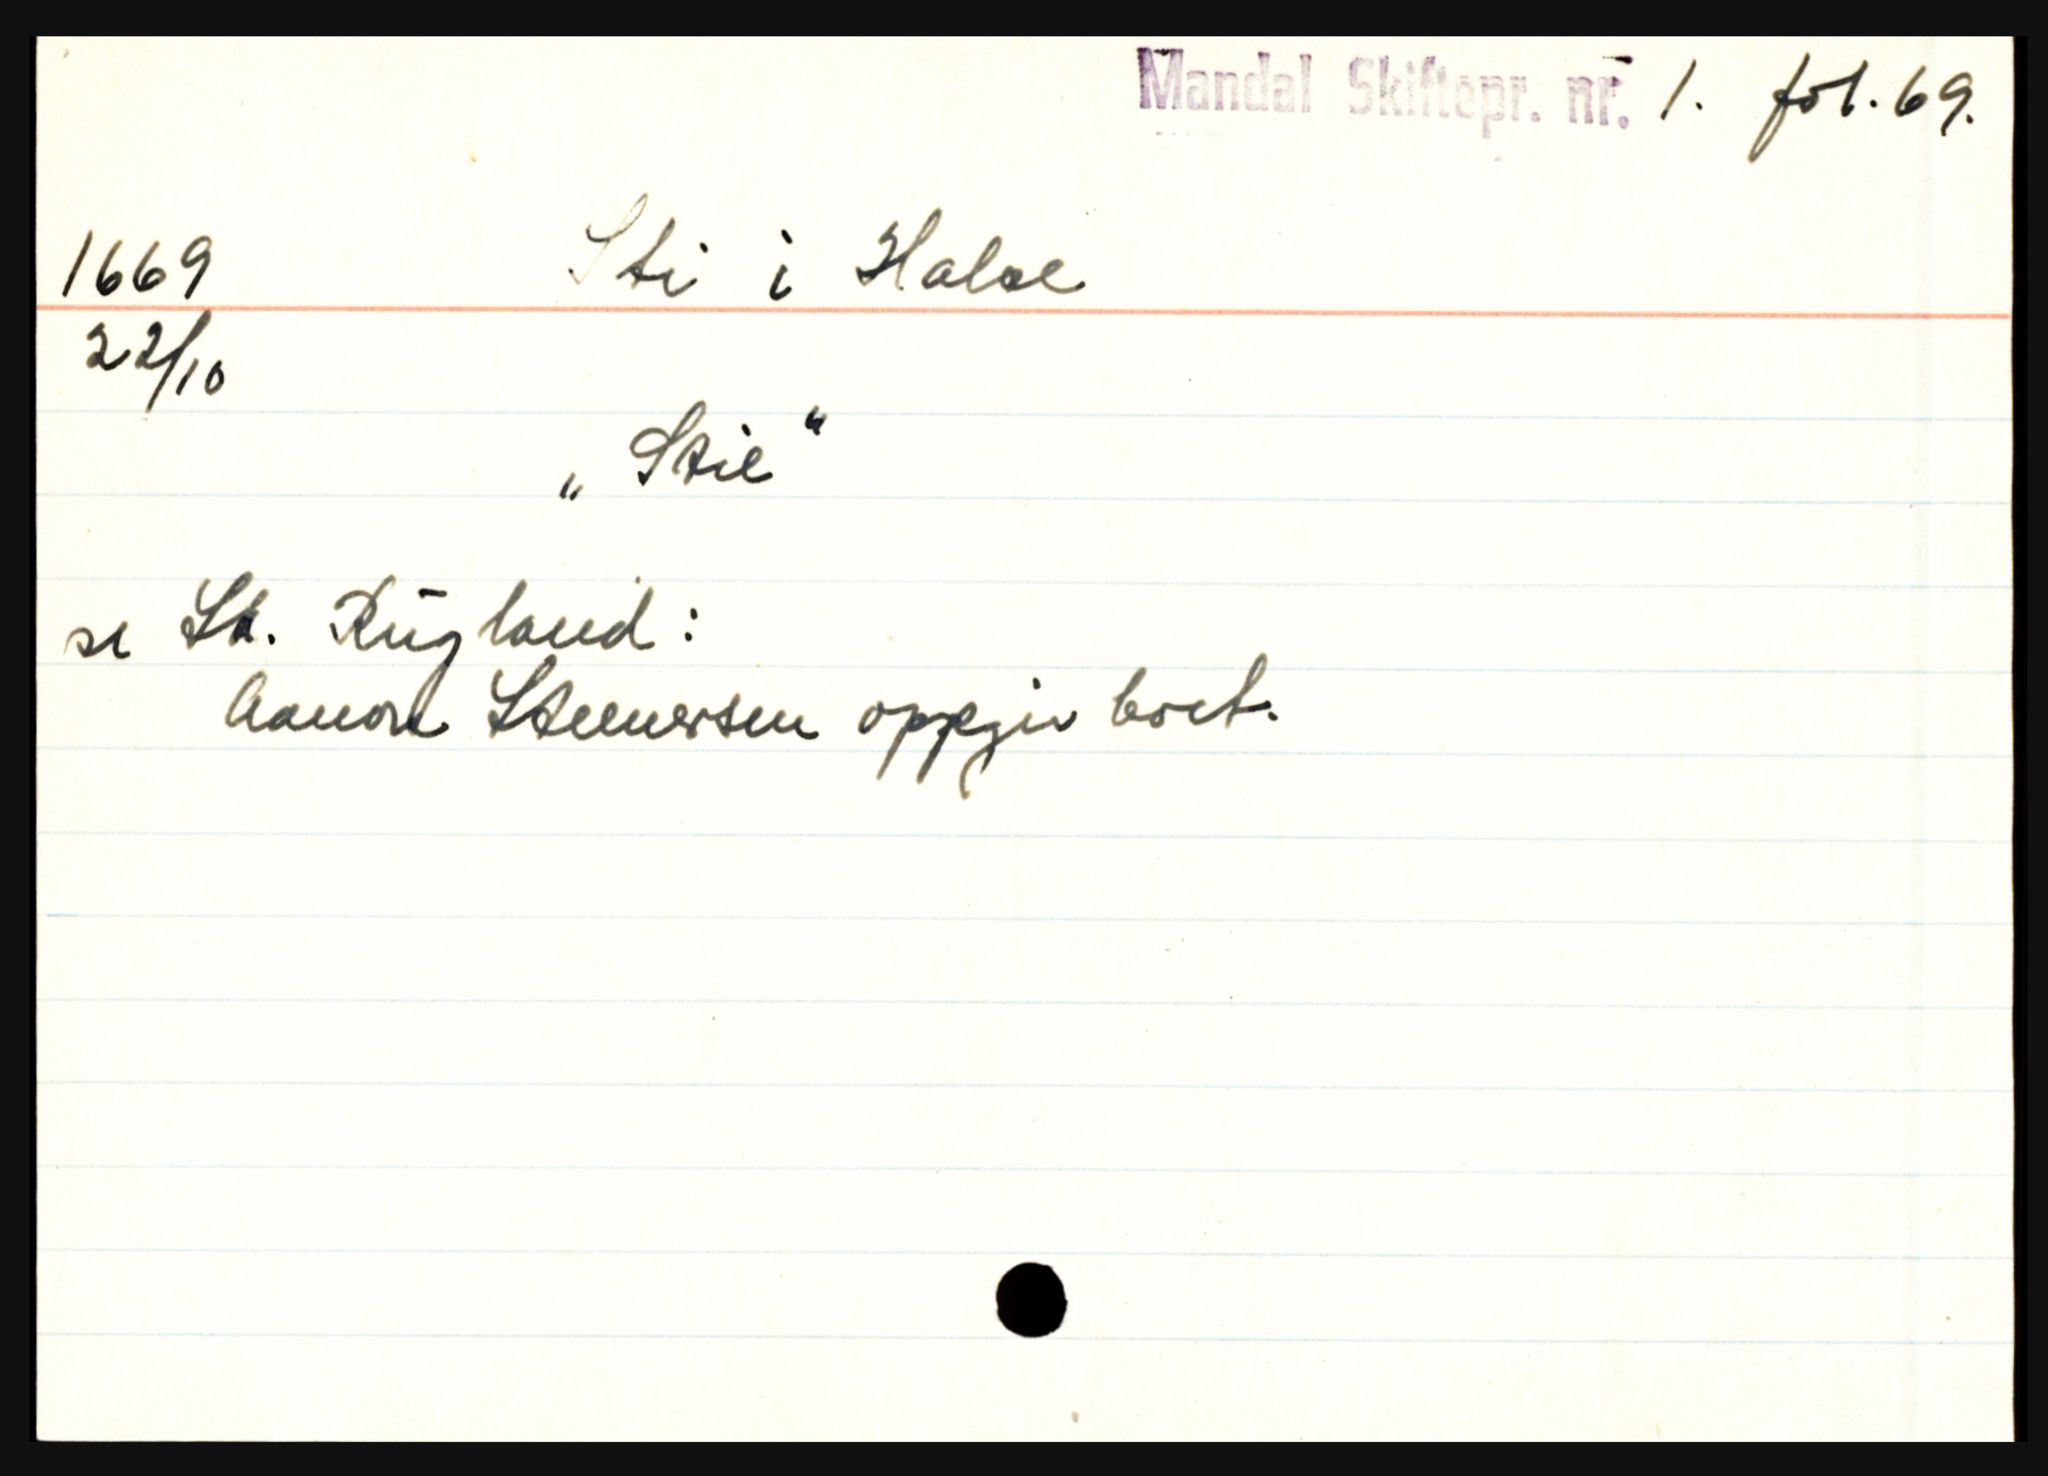 Mandal Skiftepr. nr. 1. fol. 69.
1669 Sti i Halse
22/10
„Stie“
se St. Rugland:
Aanon Steenersen oppgir boet.